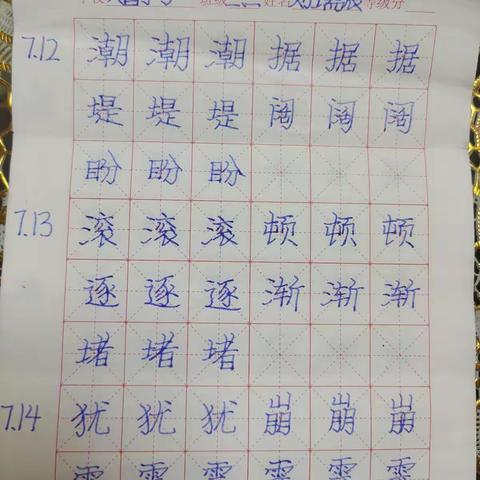 班级 姓名 等级分
7.12 潮 潮 潮 据 据 据
堤 堤 堤 阔 阔 阔
盼 盼 盼
7.13 滚 滚 滚 顿 顿 顿
逐 逐 逐 渐 渐 渐
堵 堵 堵
7.14 犹 犹 犹 崩 崩 崩